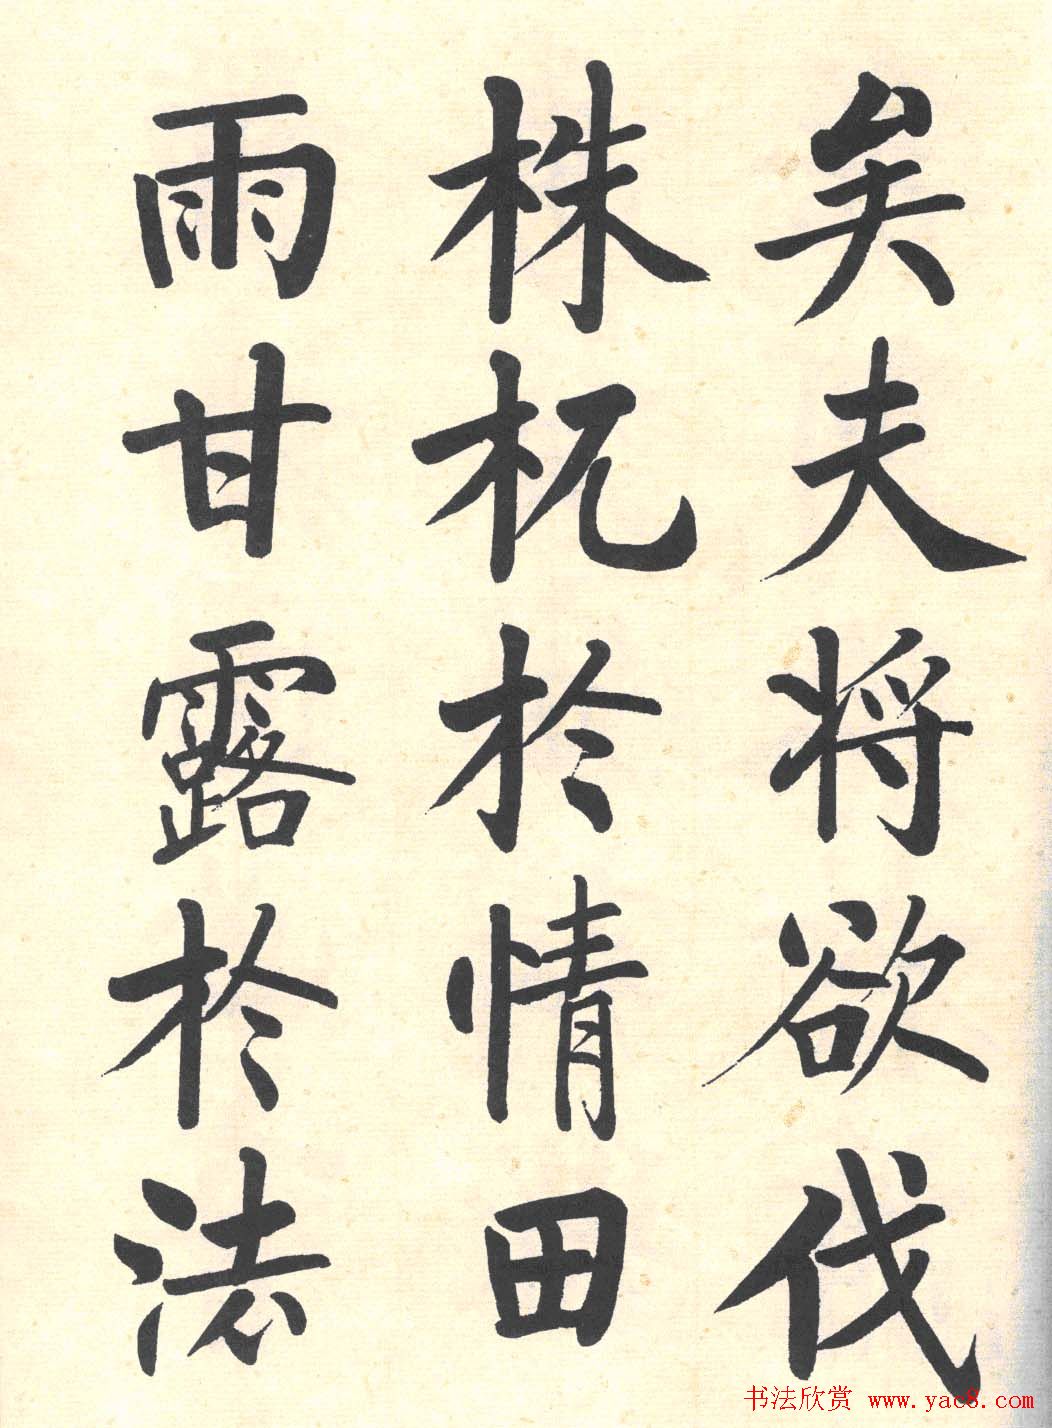 矣夫将欲伐
株杌於情田
雨甘露於法
书法欣赏 www.yac8.com